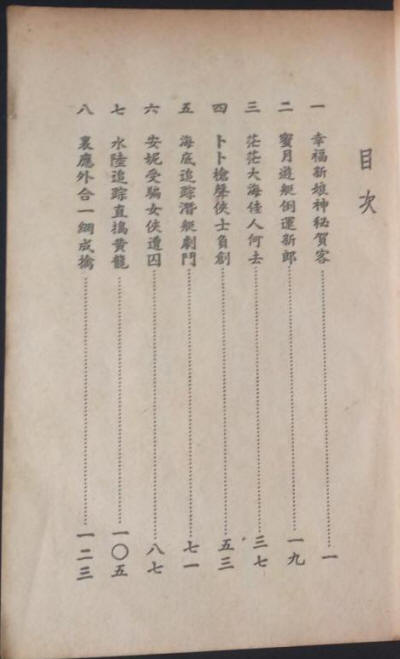 目次
一 幸福新娘神秘賀客……一
二 蜜月遊艇倒運新郎……一九
三 茫茫大海佳人何去……三七
四 卜卜槍聲俠士負創……五三
五 海底追踪潛艇劇鬥……七一
六 安妮受騙女俠遭囚……八七
七 水陸追踪直搗黄龍……一〇五
八 裏應外合一網成擒……一二三